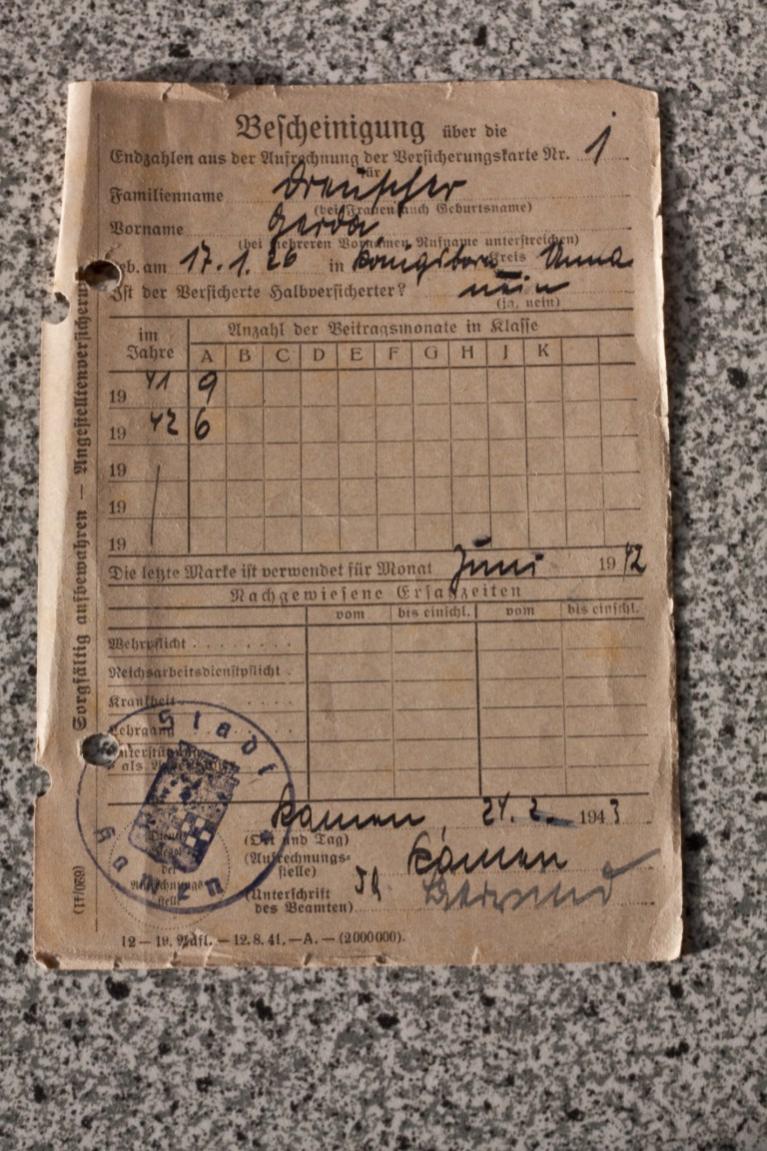 Bescheinigung über die
Endzahlen aus der Aufrechnung der Versicherungskarte Nr. 1
für
Familienname
(bei Frauen auch Geburtsname)
Vorname Gerda
(bei mehreren Vornamen Rufname unterstreichen)
geb. am 17.1.26 in Königsborn Kreis Unna
Ist der Versicherte Halbversicherter? nein
(ja, nein)
im Jahre Anzahl der Beitragsmonate in Klasse
A B C D E F G H J K
19 41 9
19 42 6
19
19
19
Die letzte Marke ist verwendet für Monat Juni 1942
Nachgewiesene Ersatzzeiten
vom bis einschl. vom bis einschl.
Wehrpflicht
Reichsarbeitsdienstpflicht
Krankheit
Lehrgang
als
Kamen, 24.2. 1943
(Ort und Tag)
(Aufrechnungs-stelle) Kamen
(Unterschrift des Beamten)
Stadt Kamen
12 — 19. — 12.8.41. — A. — (2000000).
Sorgfältig aufbewahren — Angestelltenversicherung